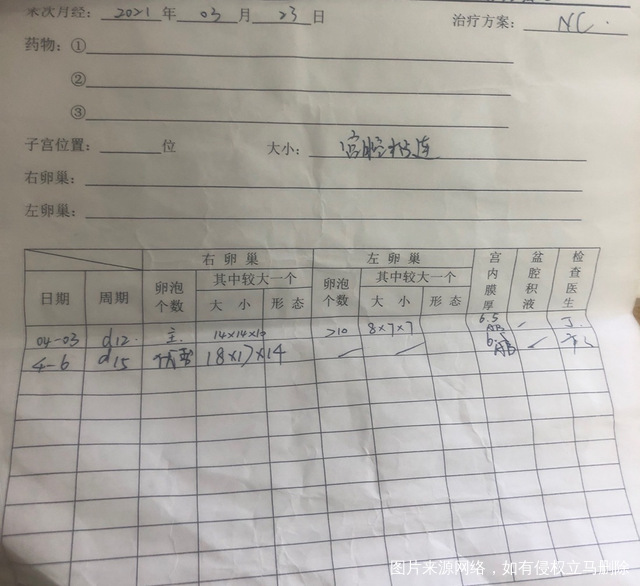 末次月经: 2021 年 03 月 23 日
治疗方案: NC.
药物: ①
②
③
子宫位置: 位 大小: 宫腔粘连
右卵巢:
左卵巢:
右卵巢 左卵巢 宫内膜厚 盆腔积液 检查医生
日期 周期 卵泡个数 其中较大一个 卵泡个数 其中较大一个
大小 形态 大小 形态
04-03 d12. 主. 14×14×10 >10 8×7×7 6.5 AB
4-6 d15 优势 18×17×14 AB
图片来源网络，如有侵权立马删除